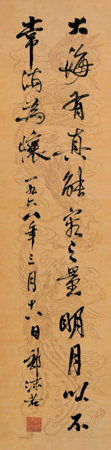 大海有真能容之量明月以不
常满为怀一九六八年三月十八日郭沫若